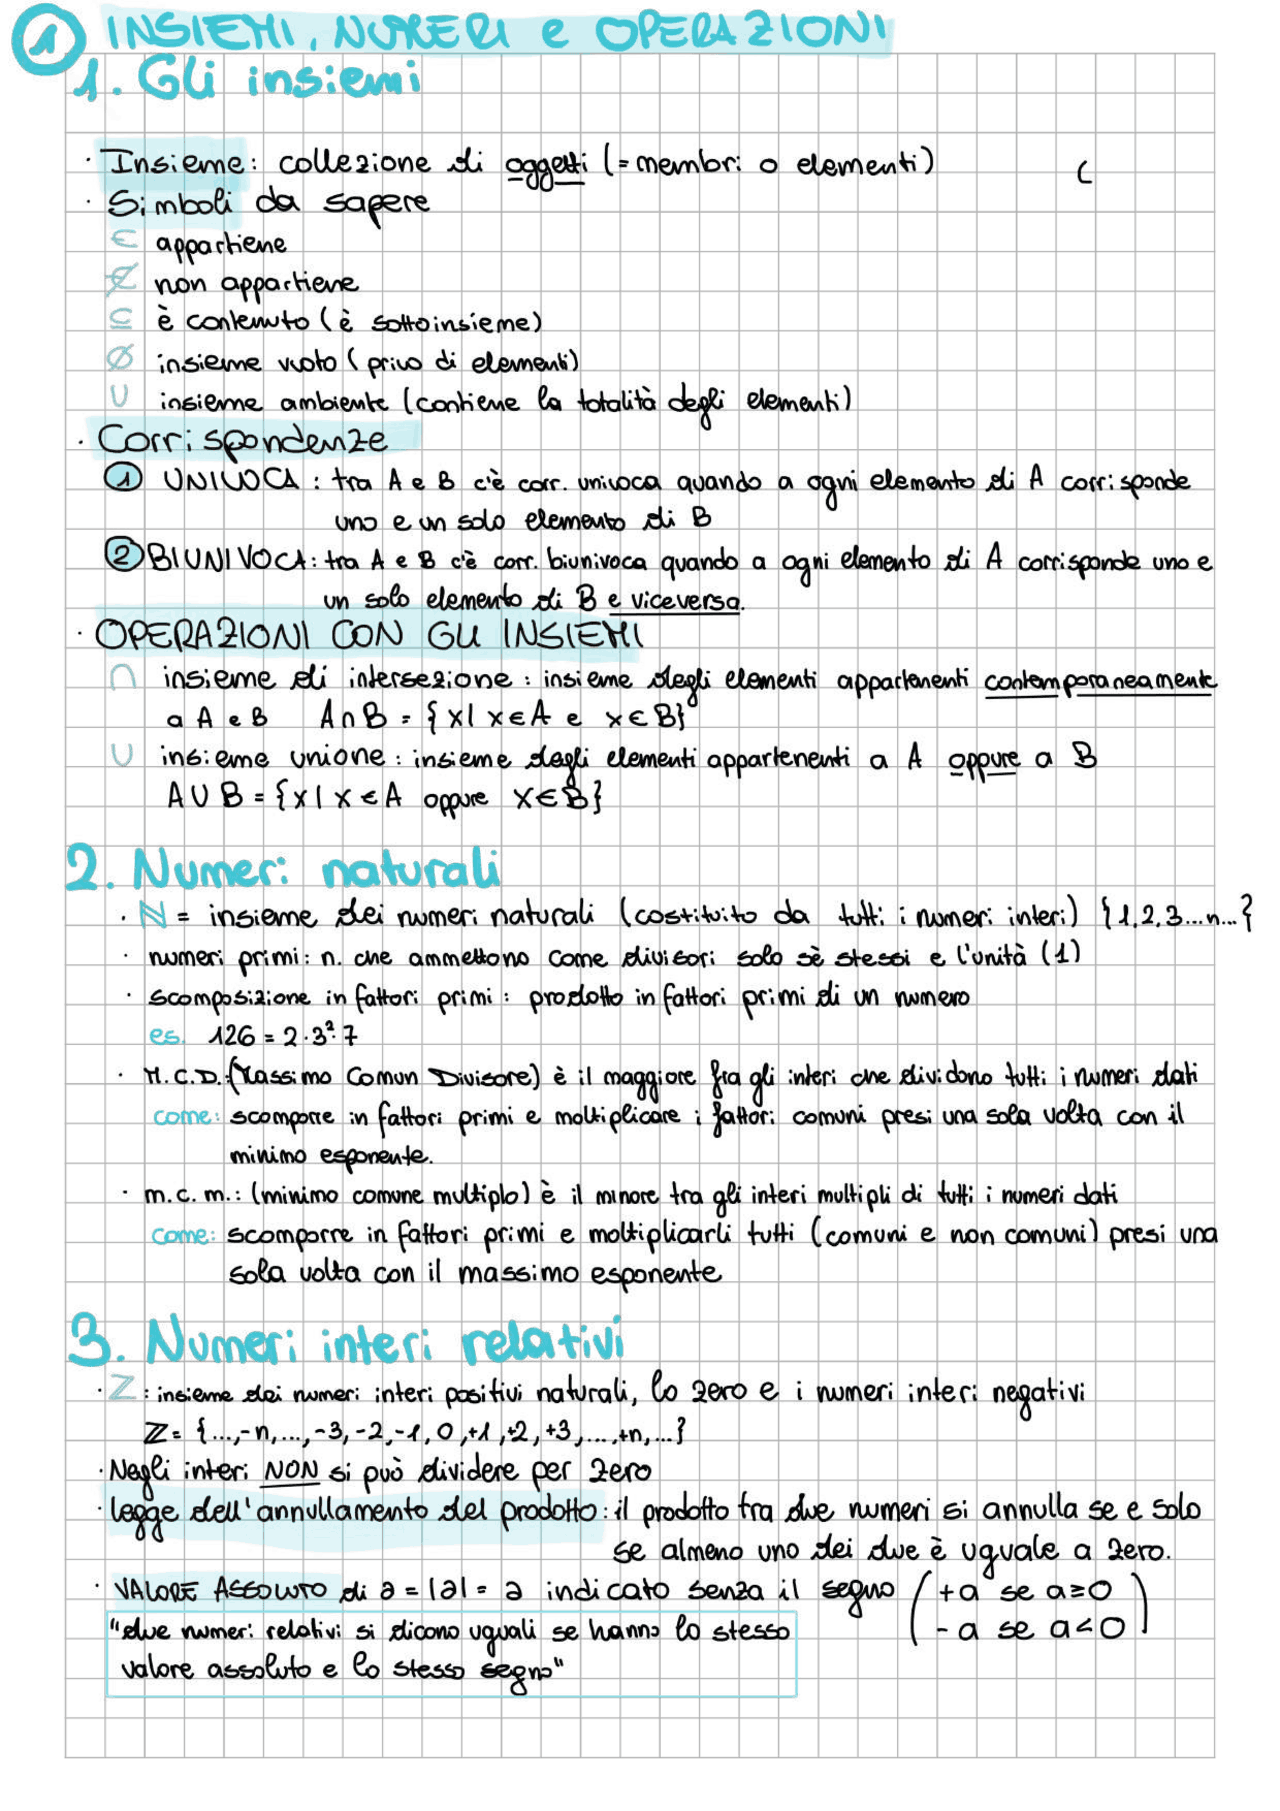 1 INSIEMI, NUMERI e OPERAZIONI
1. Gli insiemi
· Insieme: collezione di oggetti (= membri o elementi) (
· Simboli da sapere
∈ appartiene
∉ non appartiene
⊆ è contenuto (è sottoinsieme)
∅ insieme vuoto (privo di elementi)
U insieme ambiente (contiene la totalità degli elementi)
· Corrispondenze
1 UNIVOCA: tra A e B c'è corr. univoca quando a ogni elemento di A corrisponde
uno e un solo elemento di B
2 BIUNIVOCA: tra A e B c'è corr. biunivoca quando a ogni elemento di A corrisponde uno e
un solo elemento di B e viceversa.
· OPERAZIONI CON GLI INSIEMI
∩ insieme di intersezione: insieme degli elementi appartenenti contemporaneamente
a A e B A∩B = {x | x∈A e x∈B}
∪ insieme unione: insieme degli elementi appartenenti a A oppure a B
A∪B = {x | x∈A oppure x∈B}
2. Numeri naturali
· ℕ = insieme dei numeri naturali (costituito da tutti i numeri interi) {1,2,3...n...}
· numeri primi: n. che ammettono come divisori solo sè stessi e l'unità (1)
· scomposizione in fattori primi: prodotto in fattori primi di un numero
es. 126 = 2·3²·7
· M.C.D.:(Massimo Comun Divisore) è il maggiore fra gli interi che dividono tutti i numeri dati
come: scomporre in fattori primi e moltiplicare i fattori comuni presi una sola volta con il
minimo esponente.
· m.c.m.: (minimo comune multiplo) è il minore tra gli interi multipli di tutti i numeri dati
come: scomporre in fattori primi e moltiplicarli tutti (comuni e non comuni) presi una
sola volta con il massimo esponente
3. Numeri interi relativi
· ℤ: insieme dei numeri interi positivi naturali, lo zero e i numeri interi negativi
ℤ = {...,-n,...,-3,-2,-1,0,+1,+2,+3,...,+n,...}
· Negli interi NON si può dividere per zero
· legge dell'annullamento del prodotto: il prodotto tra due numeri si annulla se e solo
se almeno uno dei due è uguale a zero.
· VALORE ASSOLUTO di a = |a| = a indicato senza il segno (+a se a≥0
-a se a<0)
"due numeri relativi si dicono uguali se hanno lo stesso
valore assoluto e lo stesso segno"